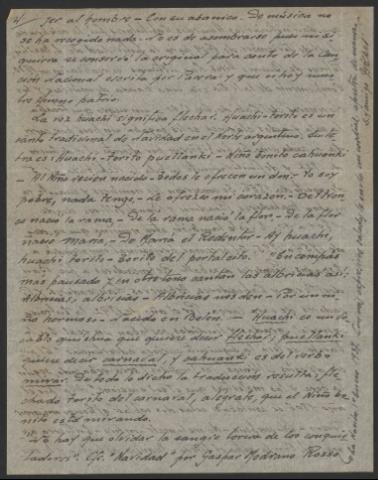 4/ jer al hombre - Con su abanico. De música no
se ha recogido nada. No es de asombrarse pues ni si
quiera se conserva la original para canto de la Can
ción Nacional escrita por Parera y que es hoy nues
tro himno patrio.
La voz huachi significa flechar. Huachi-torito es un
canto tradicional de navidad en el Norte argentino. Su le
tra es: Huachi-torito puellanki - Niño bonito cahuanki
- Al Niño recien nacido - Todos le ofrecen un don - Yo soy
pobre, nada tengo, - Le ofrezco mi corazon. - Del tron
co nació la rama, - De la rama nació la flor, - De la flor
nació María, - De María el Redentor - Ay huachi,
huachi torito - Torito del portalcito. En compás
mas pausado y en otro tono cantan las albricias así:
Albricias, albricias - Albricias nos den - Por un ni
ño hermoso - Nacido en Belen. - Huachi es un vo
cablo quichua que quiere decir flechar, puellanki
quiere decir carnaval, y cahuanki es del verbo
mirar. De todo lo dicho la traducción resulta: fle
chado torito del carnaval, alegrate, que el Niño bo
nito está mirando.
No hay que olvidar la sangre torera de los conquis
tadores". Cfr. "Navidad" por Gaspar Medrano Rosso